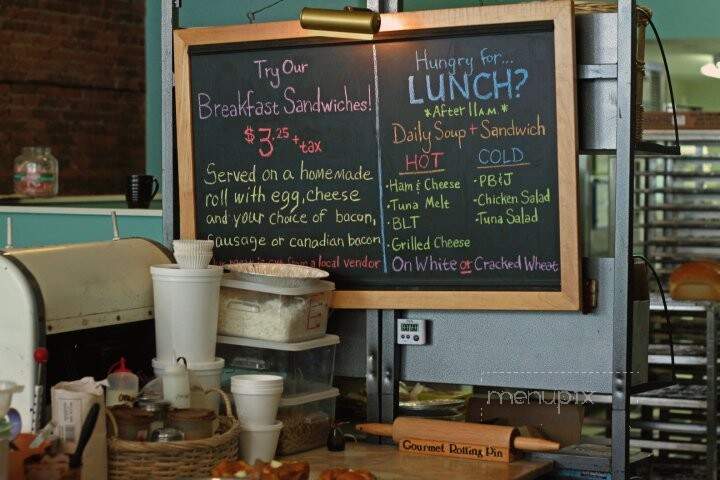 Try Our
Breakfast Sandwiches!
$3.25 + tax
Served on a homemade
roll with egg, cheese
and your choice of bacon,
sausage or canadian bacon
from a local vendor
Hungry for...
LUNCH?
*After 11 A.M.*
Daily Soup + Sandwich
HOT
• Ham & Cheese
• Tuna Melt
• BLT
• Grilled Cheese
COLD
• PB&J
• Chicken Salad
• Tuna Salad
On White or Cracked Wheat
menupix
Gourmet Rolling Pin